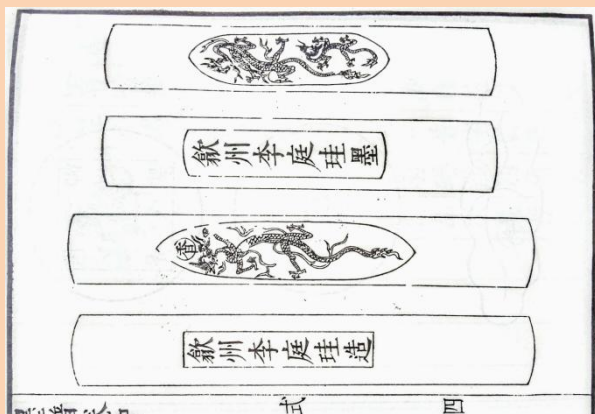 歙州李庭珪墨
香
歙州李庭珪造
式 四